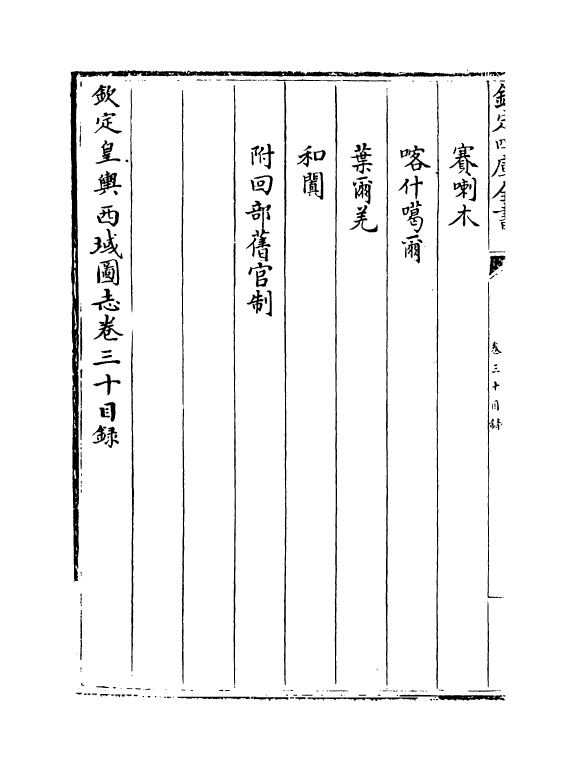 欽定四庫全書
卷三十目録
賽喇木
喀什噶爾
葉爾羌
和闐
附回部舊官制
欽定皇輿西域圖志卷三十目録